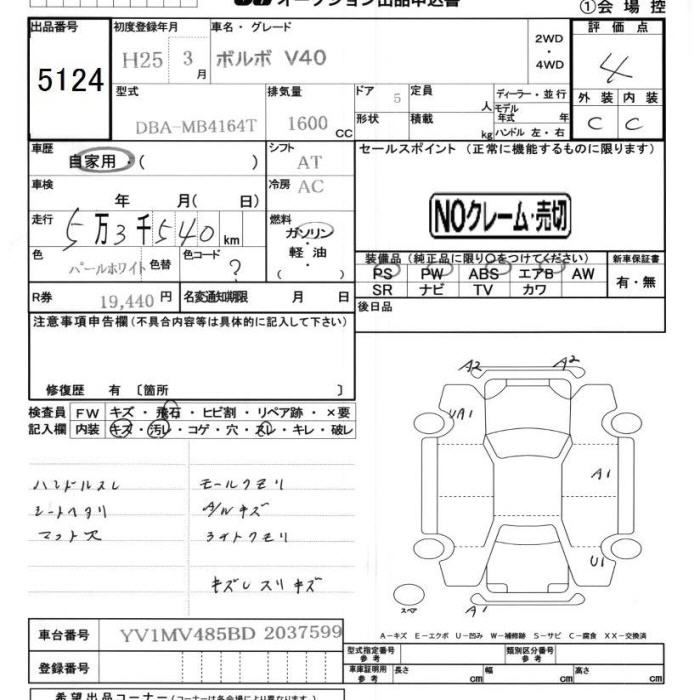 オークション出品申込書
①会場控
出品番号 初度登録年月 車名・グレード 評価点
5124 H25 3月 ボルボ V40 2WD・4WD 4
型式 排気量 ドア 定員 ディーラー・並行 外装 内装
DBA-MB4164T 1600 CC 5 人 モデル年式 年 C C
形状 積載 kg ハンドル 左・右
車歴 シフト セールスポイント (正常に機能するものに限ります)
自家用・( ) AT
車検 冷房 AC
年 月( 日) NOクレーム・売切
走行 燃料
5万3千540km ガソリン・軽油
色 色替 色コード
パールホワイト ?
装備品 (純正品に限り○をつけてください) 新車保証書
PS PW ABS エアB AW 有・無
SR ナビ TV カワ
R券 19,440円 名変通知期限 月 日
後日品
注意事項申告欄(不具合内容等は具体的に記入して下さい)
修復歴 有 〔箇所 〕
検査員 FW キズ・飛石・ヒビ割・リペア跡・×要
記入欄 内装 キズ・汚レ・コゲ・穴・スレ・キレ・破レ
A2 A2
UA1
ハンドルスレ モールクモリ A1
シートヘタリ A/Wキズ
マット穴 ライトクモリ
U1
キズレスリキズ
スペア A1
A-キズ E-エクボ U-凹み W-補修跡 S-サビ C-腐食 XX-交換済
車台番号 YV1MV485BD 2037599
型式指定番号 参考 類別区分番号 参考
登録番号
車庫証明用 参考 長さ cm 幅 cm 高さ cm
希望出品コーナー(コーナーは各会場により異なります)